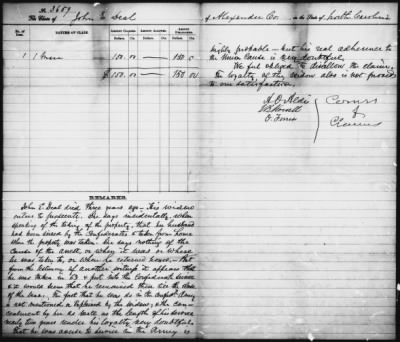 No. 3667
The Claim of John E. Deal of Alexander Co. in the State of North Carolina
No. of Item. NATURE OF CLAIM. AMOUNT CLAIMED. AMOUNT ALLOWED. AMOUNT DISALLOWED.
Dollars. Cts. Dollars. Cts. Dollars. Cts.
1 1 150 00 150 0
$150 00 150 00
REMARKS.
John E. Deal died three years ago - His widow
to prosecute. She says incidentally when
speaking of the taking of the property, that her husband
had been by the Confederates & taken from home
when the property was taken. She says nothing of the
of the arrest, or when it was or where
he was taken to, or when he returned home. - But
from the testimony of another it appears that
he was taken in 63 & put into the Confederate service
& it would seem that he remained there till the close
of the war. The fact that he was in the Army
is not mentioned or explained by the widow, & the
by her as well as the length of his service
nearly two years render his loyalty very doubtful.
That he was averse to service in the Army is
highly probable - but his real adherence to
the Union Cause is very doubtful.
We feel obliged to disallow the claim.
The loyalty of the widow also is not proved
to our satisfaction.
A. O. Aldis
J. B. Howell
O. Ferriss
Comrs
of
Claims